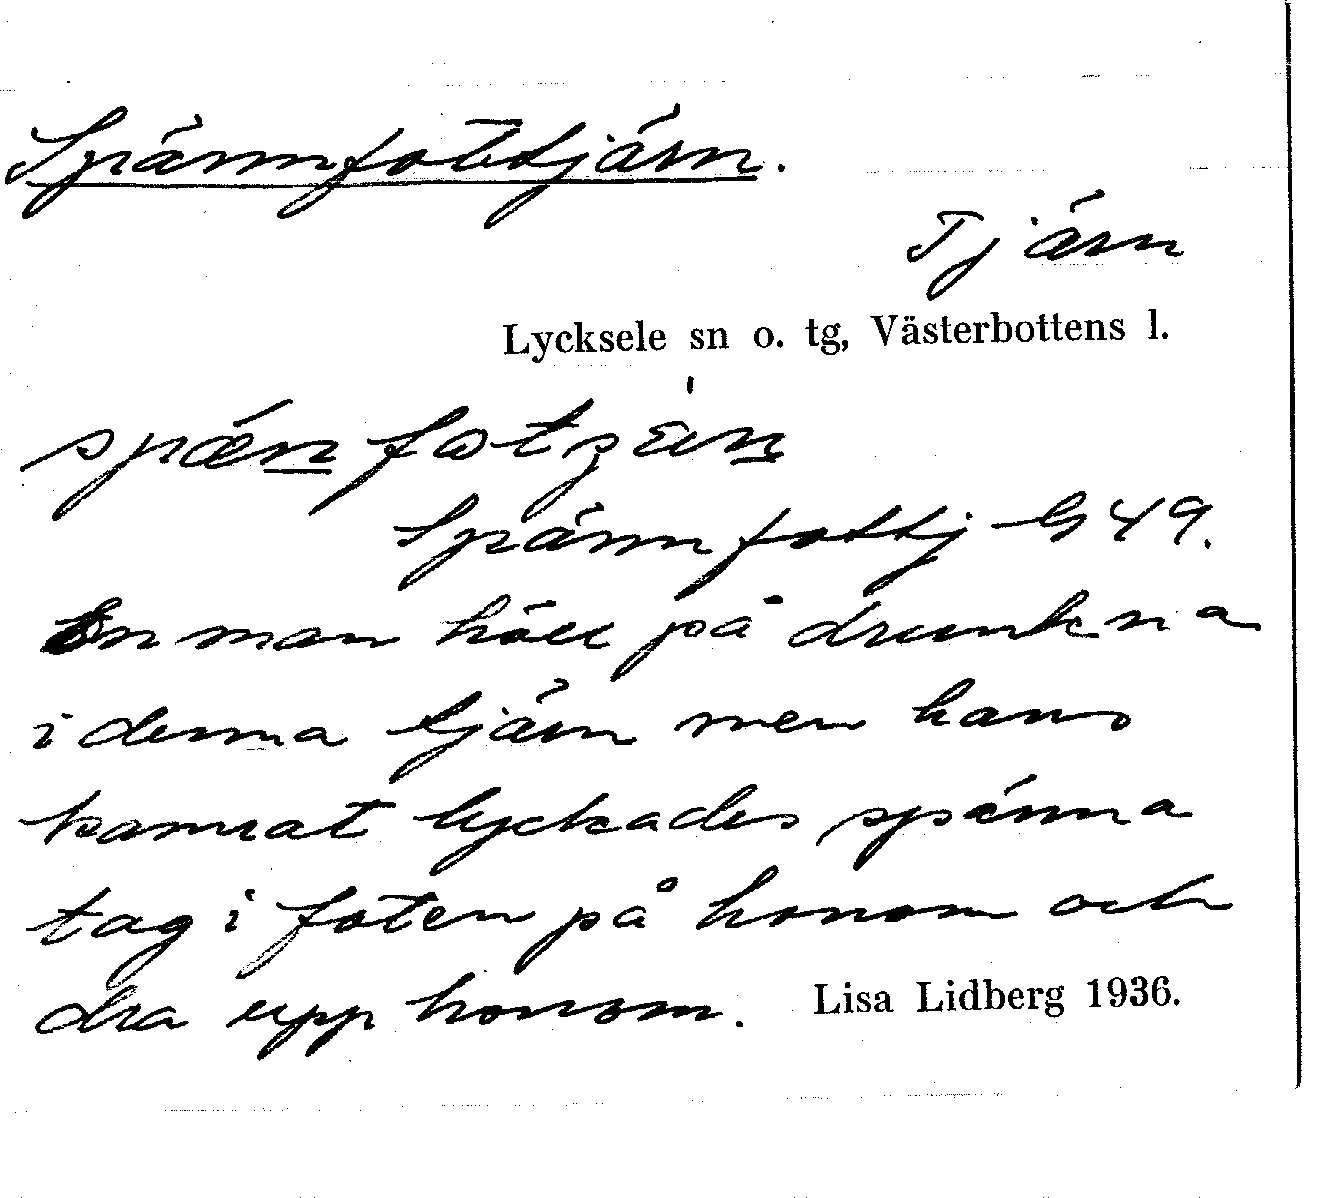 Spännfottjärn.
Tjärn
Lycksele sn o. tg, Västerbottens l.
Spännfottj G 49.
En man höll på drunkna
i denna tjärn men hans
kamrat lyckades spänna
tag i foten på honom och
dra upp honom. Lisa Lidberg 1936.